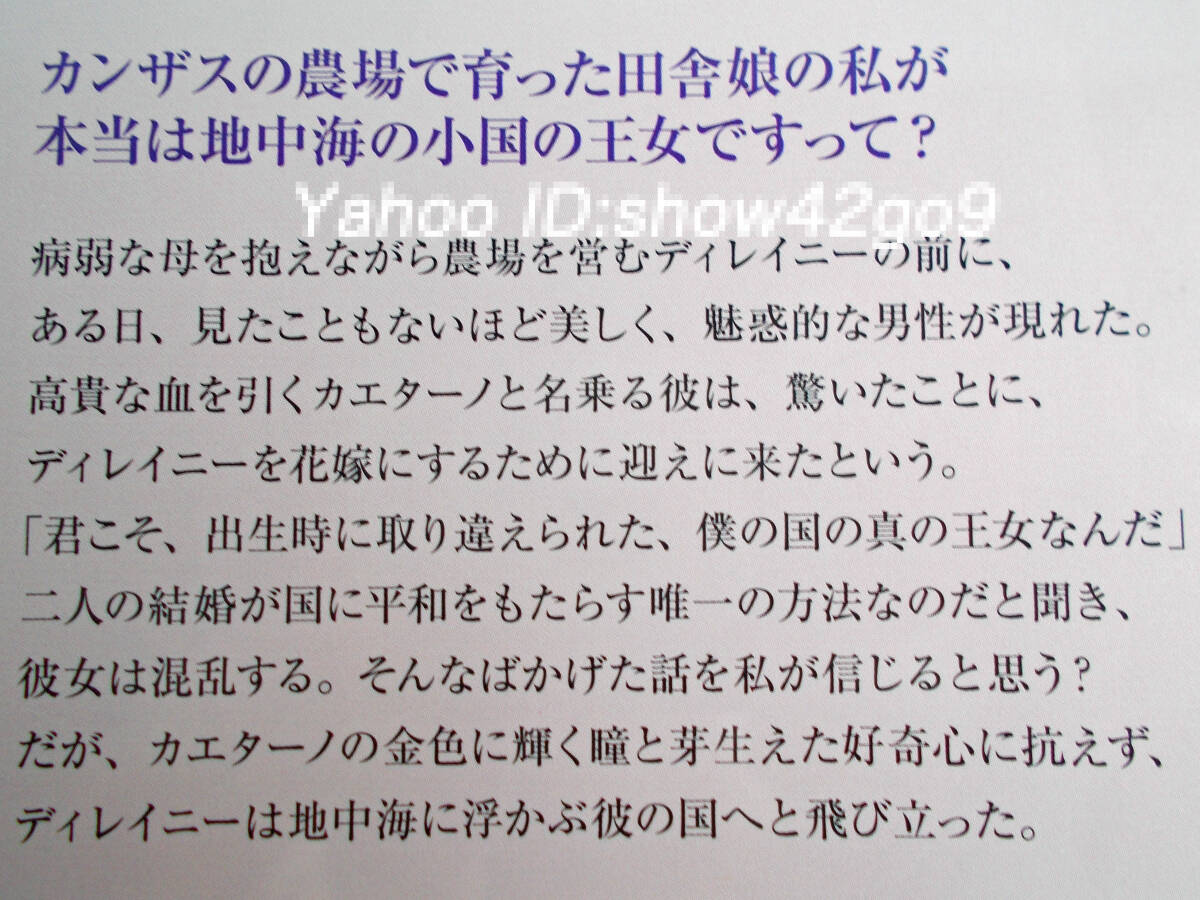 カンザスの農場で育った田舎娘の私が
本当は地中海の小国の王女ですって？
Yahoo ID:show42go9
病弱な母を抱えながら農場を営むディレイニーの前に、
ある日、見たこともないほど美しく、魅惑的な男性が現れた。
高貴な血を引くカエターノと名乗る彼は、驚いたことに、
ディレイニーを花嫁にするために迎えに来たという。
「君こそ、出生時に取り違えられた、僕の国の真の王女なんだ」
二人の結婚が国に平和をもたらす唯一の方法なのだと聞き、
彼女は混乱する。そんなばかげた話を私が信じると思う？
だが、カエターノの金色に輝く瞳と芽生えた好奇心に抗えず、
ディレイニーは地中海に浮かぶ彼の国へと飛び立った。